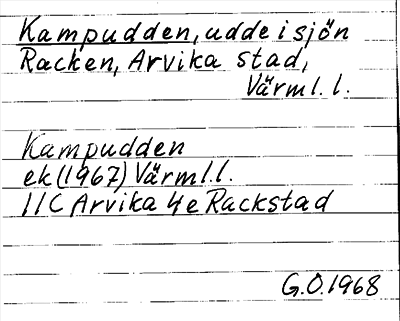 Kampudden, udde i sjön
Racken, Arvika stad,
Värml. l.
Kampudden
ek (1967) Värml.l.
11C Arvika 4e Rackstad
G.O.1968